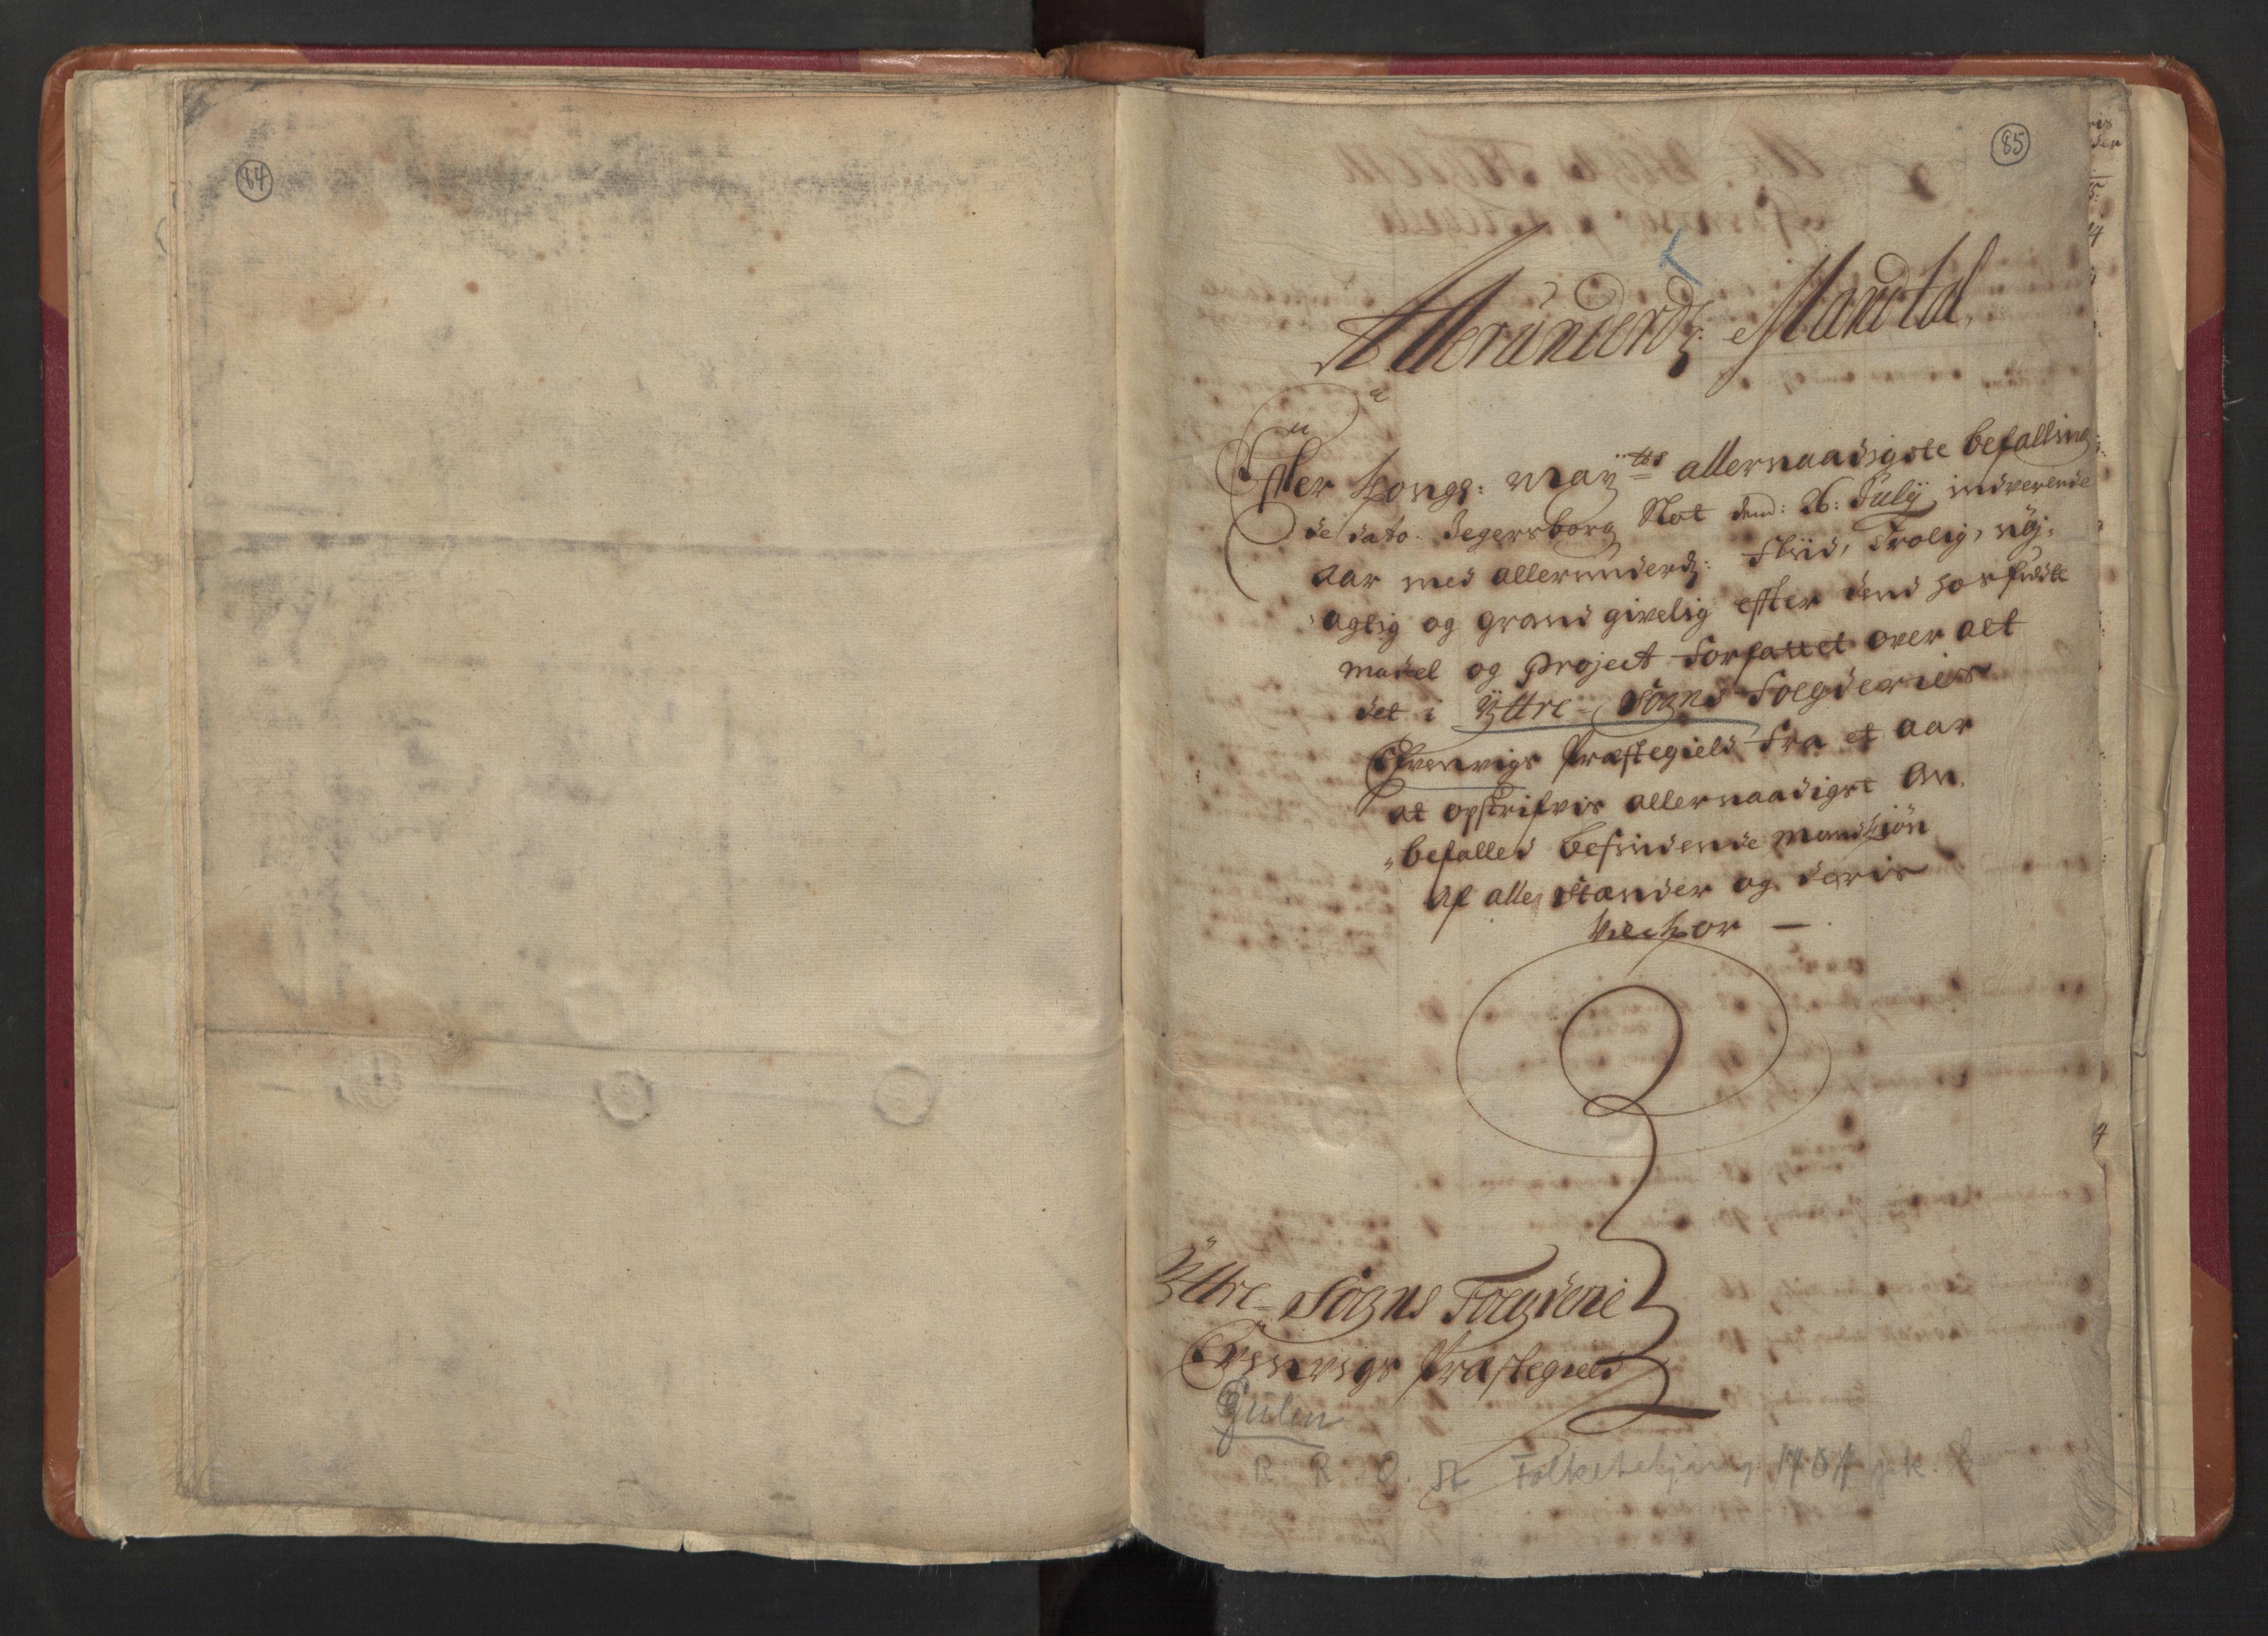 84
85
Allerunderd: Mandtal,
Effter Kongs: Mayttes allernaadigste befalling
de dato. Jegersborg Slot dend: 26: July indverende
aar med allerunderd: Fliid, Trolig, nøj-
agtig og grandgivelig effter dend hosfuldte
model og Project forfattet over alt
det i Yttre-Sogns Foegderies
Evenvigs Præstegield fra et aar
at opskrifvis allernaadigst An-
befalled befindende Mandkiön
Af alle Stænder og deris
Yttre-Sogns Foegderie
Evenvigs Præstegield
Gulen
R R. O. St Folketeljing 1701 pk. 8